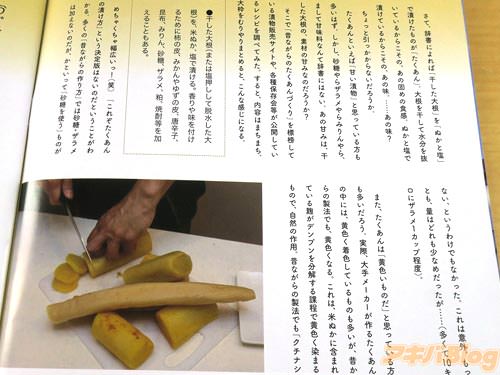 さて、辞書によれば「干した大根」を「ぬかと塩」
で漬けたものが「たくあん」。大根を干して水分を抜
いているからこそ、あの固めの食感。ぬかと塩で
漬けているからこそ、あの味……。あの味……?
ちょっと引っかからないだろうか。
たくあんといえば「甘い漬物」と思っている方も
多いはず。しかし、砂糖やらザラメやらみりんやら、
まして甘味料なんて辞書にはない。あの甘みは、干
した大根の、素材の甘みなのだろうか?
そこで「昔ながらのたくあんづくり」を標榜して
いる漬物販売サイトや、各種保存会等が公開してい
るレシピを調べてみた。すると、内容はまちまち。
大枠をむりやりまとめると、こんな感じになる。
●干した大根(または塩押しして脱水した大
根)を、米ぬか、塩で漬ける。香りや味を付け
るために柿の皮、みかんやゆずの皮、唐辛子、
昆布、みりん、砂糖、ザラメ、粕、焼酎等を加
えることもある。
めちゃくちゃ幅広いっー(笑)。「これぞたくあん
の漬け方」という決定版はないのだということがわ
かる。多くの「昔ながらの作り方」では砂糖・ザラメ
は加えないのだが、かといって「砂糖を使う」ものが
ない、というわけでもなかった。これは意外。もっ
とも、量はどれも少なめだったが……(多くて10キ
ロにザラメ一カップ程度)。
また、たくあんは「黄色いものだ」と思っている方
も多いだろう。実際、大手メーカーが作るたくあん
の中には、黄色く着色しているものも多いが、昔か
らの製法でも、黄色くなる。これは、米ぬかに含まれ
ている麹がデンプンを分解する課程で黄色く染まる
もので、自然の作用。昔ながらの製法でも「クチナシ
アキバBlog